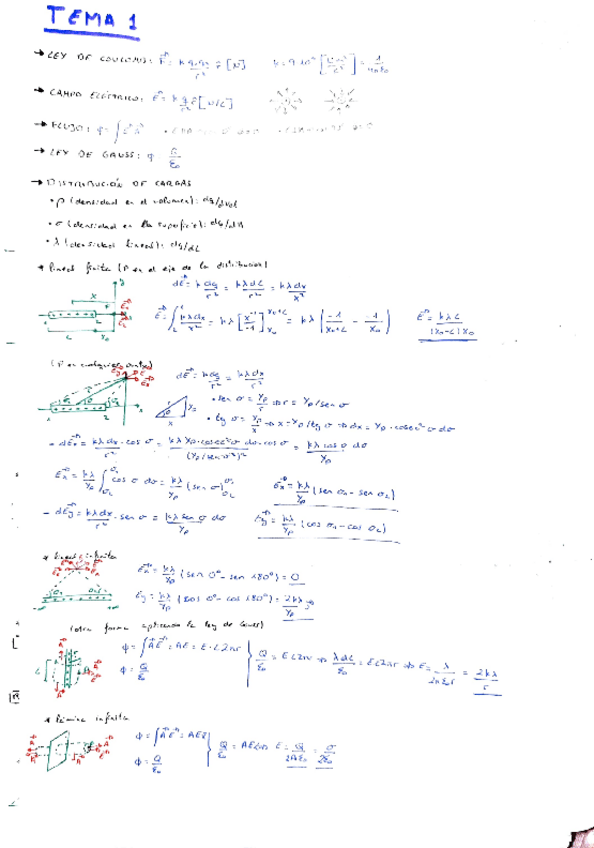 TEMA 1
→ LEY DE COULOMB: F = k q₁q₂/r² r̂ [N] k = 9·10⁹ = 1/4πε₀
→ CAMPO ELÉCTRICO: E = k q/r² r̂ [N/C]
→ FLUJO: φ = ∫
→ LEY DE GAUSS: φ Q/ε₀
→ DISTRIBUCIÓN DE CARGAS
• ρ (densidad en el volumen): dq/dVol
• σ (densidad en la superficie): dq/dA
• λ (densidad lineal): dq/dL
* lineal finita (P en el eje de la distribución)
dE = k dq/r² = kλdL/r² = kλdx/x²
E = ∫ kλdx/x² = kλ [x⁻¹/-1] = kλ [-1/x₀+L - -1/x₀] E = kλL/(x₀-L)x₀
(P en cualquier punto)
dE = k dq/r² = kλdx/r²
• sen σ = yp/r ⇒ r = yp/sen σ
• tg σ = yp/x ⇒ x = yp/tg σ ⇒ dx = yp · cosec² σ dσ
- dEx = kλdx/r² · cos σ = kλ yp · cosec² σ dσ · cos σ/(yp/sen σ)² = kλ cos σ dσ/yp
Ex = kλ/yp ∫ cos σ dσ = kλ/yp (sen σ) Ex = kλ/yp (sen σ₁ - sen σ₂)
- dEy = kλdx/r² · sen σ = kλ sen σ dσ/yp Ey = kλ/yp (cos σ₁ - cos σ₂)
* lineal infinita
Ex = kλ/yp (sen 0° - sen 180°) = 0
Ey = kλ/yp (cos 0° - cos 180°) = 2kλ/yp
(otra forma aplicando la ley de Gauss)
φ = ∫AE = AE = E·L2πr
φ = Q/ε₀
Q/ε₀ = EL2πr ⇒ λdL/ε₀ = EL2πr ⇒ E = λ/2πε₀r = 2kλ/r
* Lámina infinita
φ = ∫AE = AE2
φ = Q/ε₀
Q/ε₀ = AE2 ⇒ E = Q/2Aε₀ = σ/2ε₀